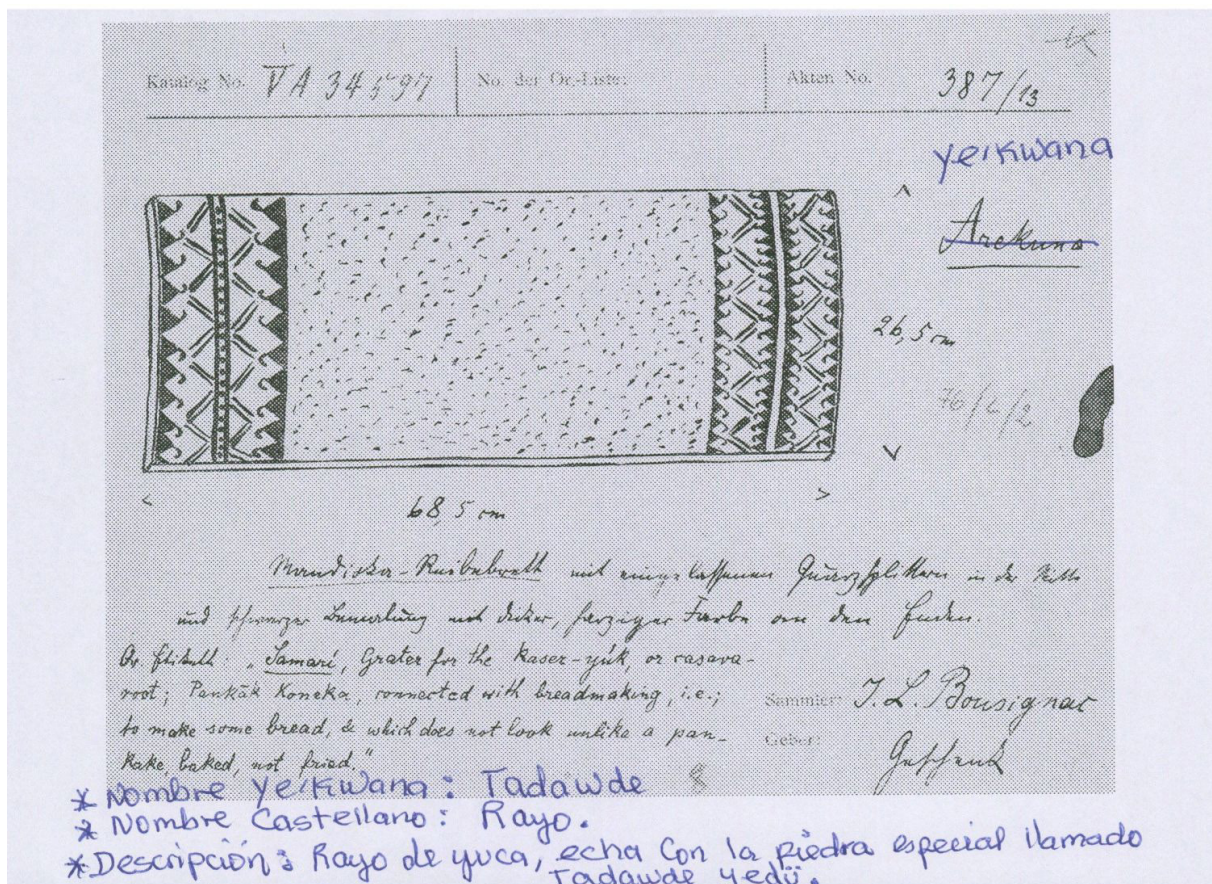 Katalog No. VA 34597 No. der Or.-Liste: Akten No. 387/13
Ye'kwana
Arekuna
26,5 cm
76/L/2
68,5 cm
Mandioka-Reibebrett mit eingelassenen Quarzsplittern in der Mitte
und schwarzer Bemalung mit dicker, harziger Farbe an den Enden.
Or. Etikett: "Samarí, Grater for the Kaser-yúk, or casava-
root; Pankák Koneka, connected with breadmaking, i.e.;
to make some bread, & which does not look unlike a pan-
kake, baked, not fried."
Sammler: J. L. Bousignac
Geber: Geschenk
8
* Nombre Ye'kwana: Tadawde
* Nombre Castellano: Rayo.
* Descripción: Rayo de yuca, echa con la piedra especial llamado
Tadawde yedü.